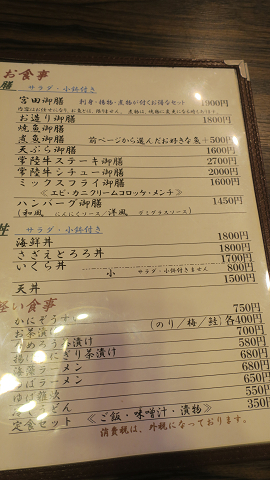 お食事
膳 サラダ・小鉢付き
宮田御膳 刺身・揚物・煮物が付くお得なセット 1900円
お造り御膳 1800円
焼魚御膳
煮魚御膳 前ページから選んだお好きな魚+500円
天ぷら御膳 1600円
常陸牛ステーキ御膳 2700円
常陸牛シチュー御膳 2000円
ミックスフライ御膳 1600円
≪エビ・カニクリームコロッケ・メンチ≫
ハンバーグ御膳 1450円
(和風 にんにくソース/洋風 デミグラスソース)
丼 サラダ・小鉢付き
海鮮丼 1800円
さざえとろろ丼 1800円
いくら丼 1700円
小 サラダ・小鉢付きません 800円
天丼 1500円
軽い食事
かにぞうすい 750円
お茶漬け (のり/梅/鮭) 各400円
700円
茶漬け 580円
680円
ラーメン 680円
ラーメン 650円
ゆば雑炊 550円
うどん 350円
定食セット ≪ご飯・味噌汁・漬物≫
消費税は、外税になっております。